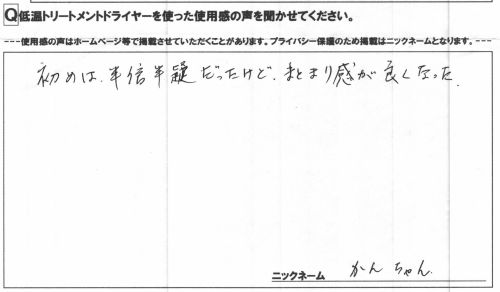 Q低温トリートメントドライヤーを使った使用感の声を聞かせてください。
---使用感の声はホームページ等で掲載させていただくことがあります。プライバシー保護のため掲載はニックネームとなります。---
初めは、半信半疑だったけど、まとまり感が良くなった.
ニックネーム かんちゃん.